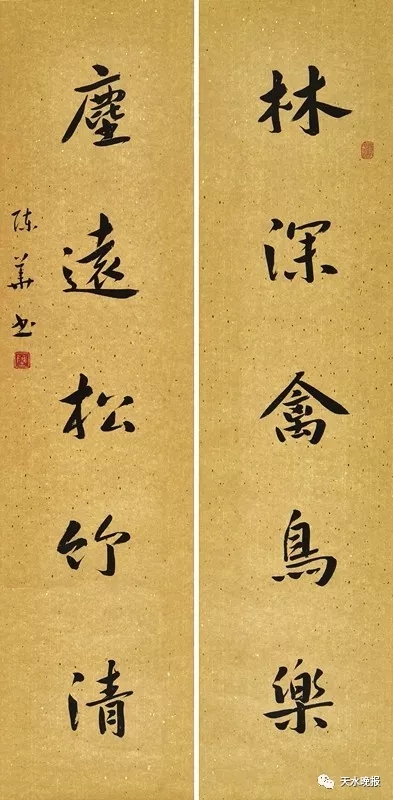 林深禽鳥樂
塵遠松竹清
陈華书
天水晚报